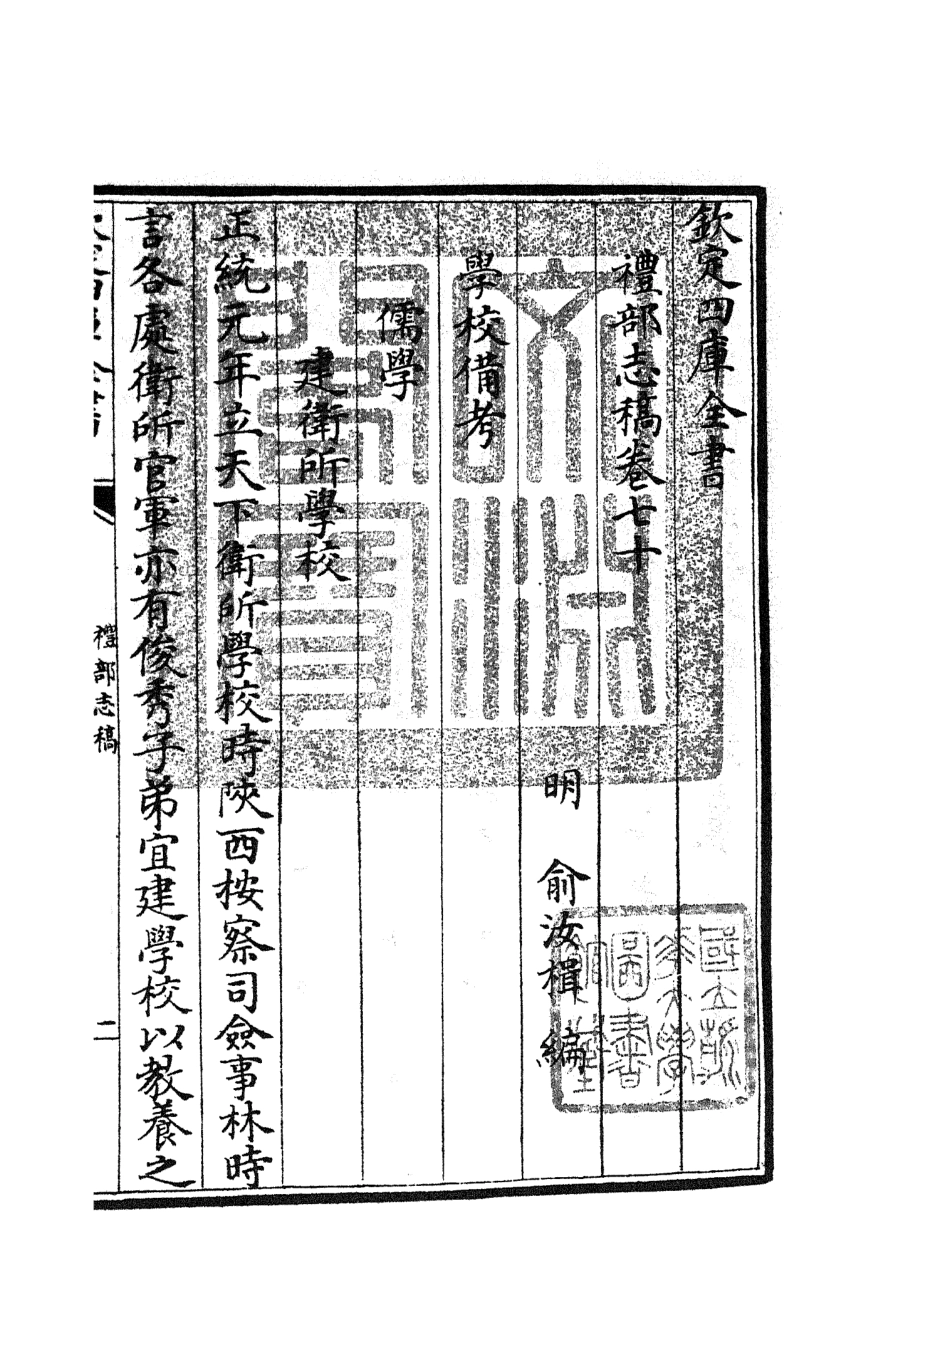 欽定四庫全書
禮部志稿卷七十
明　俞汝楫　編
學校備考
儒學
建衛所學校
正統元年立天下衛所學校時陜西按察司僉事林時
言各處衛所官軍亦有俊秀子弟宜建學校以教養之
禮部志稿
二